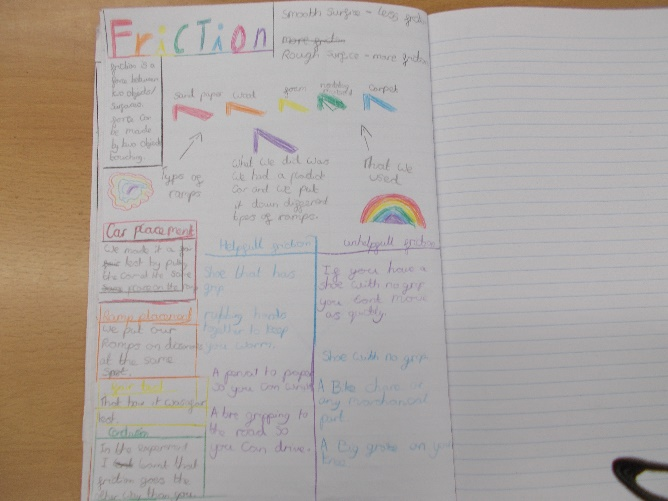 Friction
Smooth Surface - less friction
more friction
Rough Surface - more friction
friction is a
force between
two objects/
Surfaces.
force can
be made
by two objects
touching.
Sand paper
wood
foam
Carpet
Types of
ramps
What we did was
We had a
Car and we put
it down different
types of ramps.
That we
used
Car placement
We made it a
test by puting
the car at the same
place on the ramp
Ramp placement
We put our
Ramps on
at the same
Spot.
fair test
That how it was fair
test.
Conclusion
In the experiment
I that
friction goes the
than you
Helpfull friction
Shoe that has
grip
rubbing hands
together to keep
you worm.
A pencil to paper
So you can write
A tire gripping to
the road so
you can drive.
unhelpfull friction
If you have a
shoe with no grip
you cant move
as quickly
Shoe with no grip
A Bike chane or
any mechanical
part.
A Big graze on your
knee.